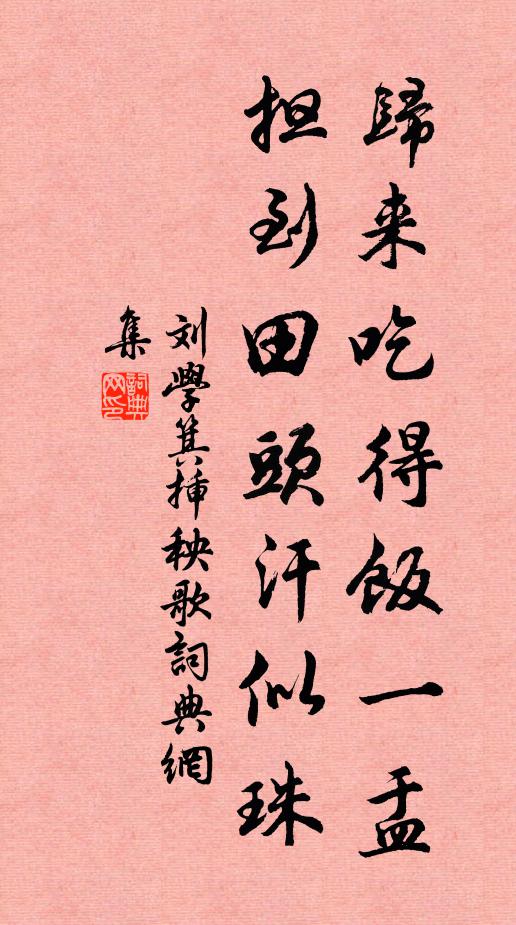 歸来吃得飯一盂
担到田頭汗似珠
刘學箕插秧歌詞典網
集
詞典网印